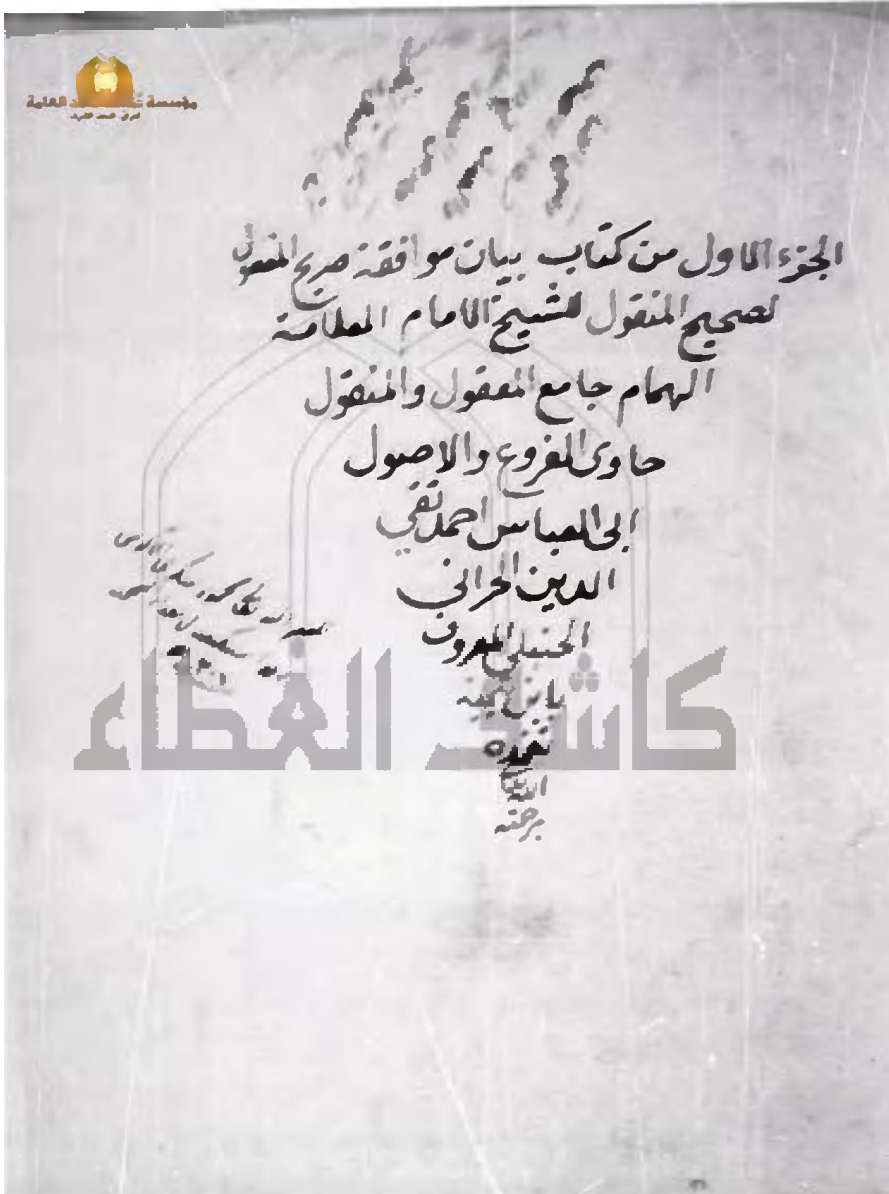 مؤسسة العامة
الجزء الاول من كتاب بيان موافقة صريح المعقول
لصحيح المنقول للشيخ الامام العلامة
الهمام جامع المعقول والمنقول
حاوى الفروع والاصول
ابى العباس احمد تقي
الدين الحراني
الحنبلي المعروف
بابن تيمية
تغمده
الله
برحمته
كاشف الغطاء